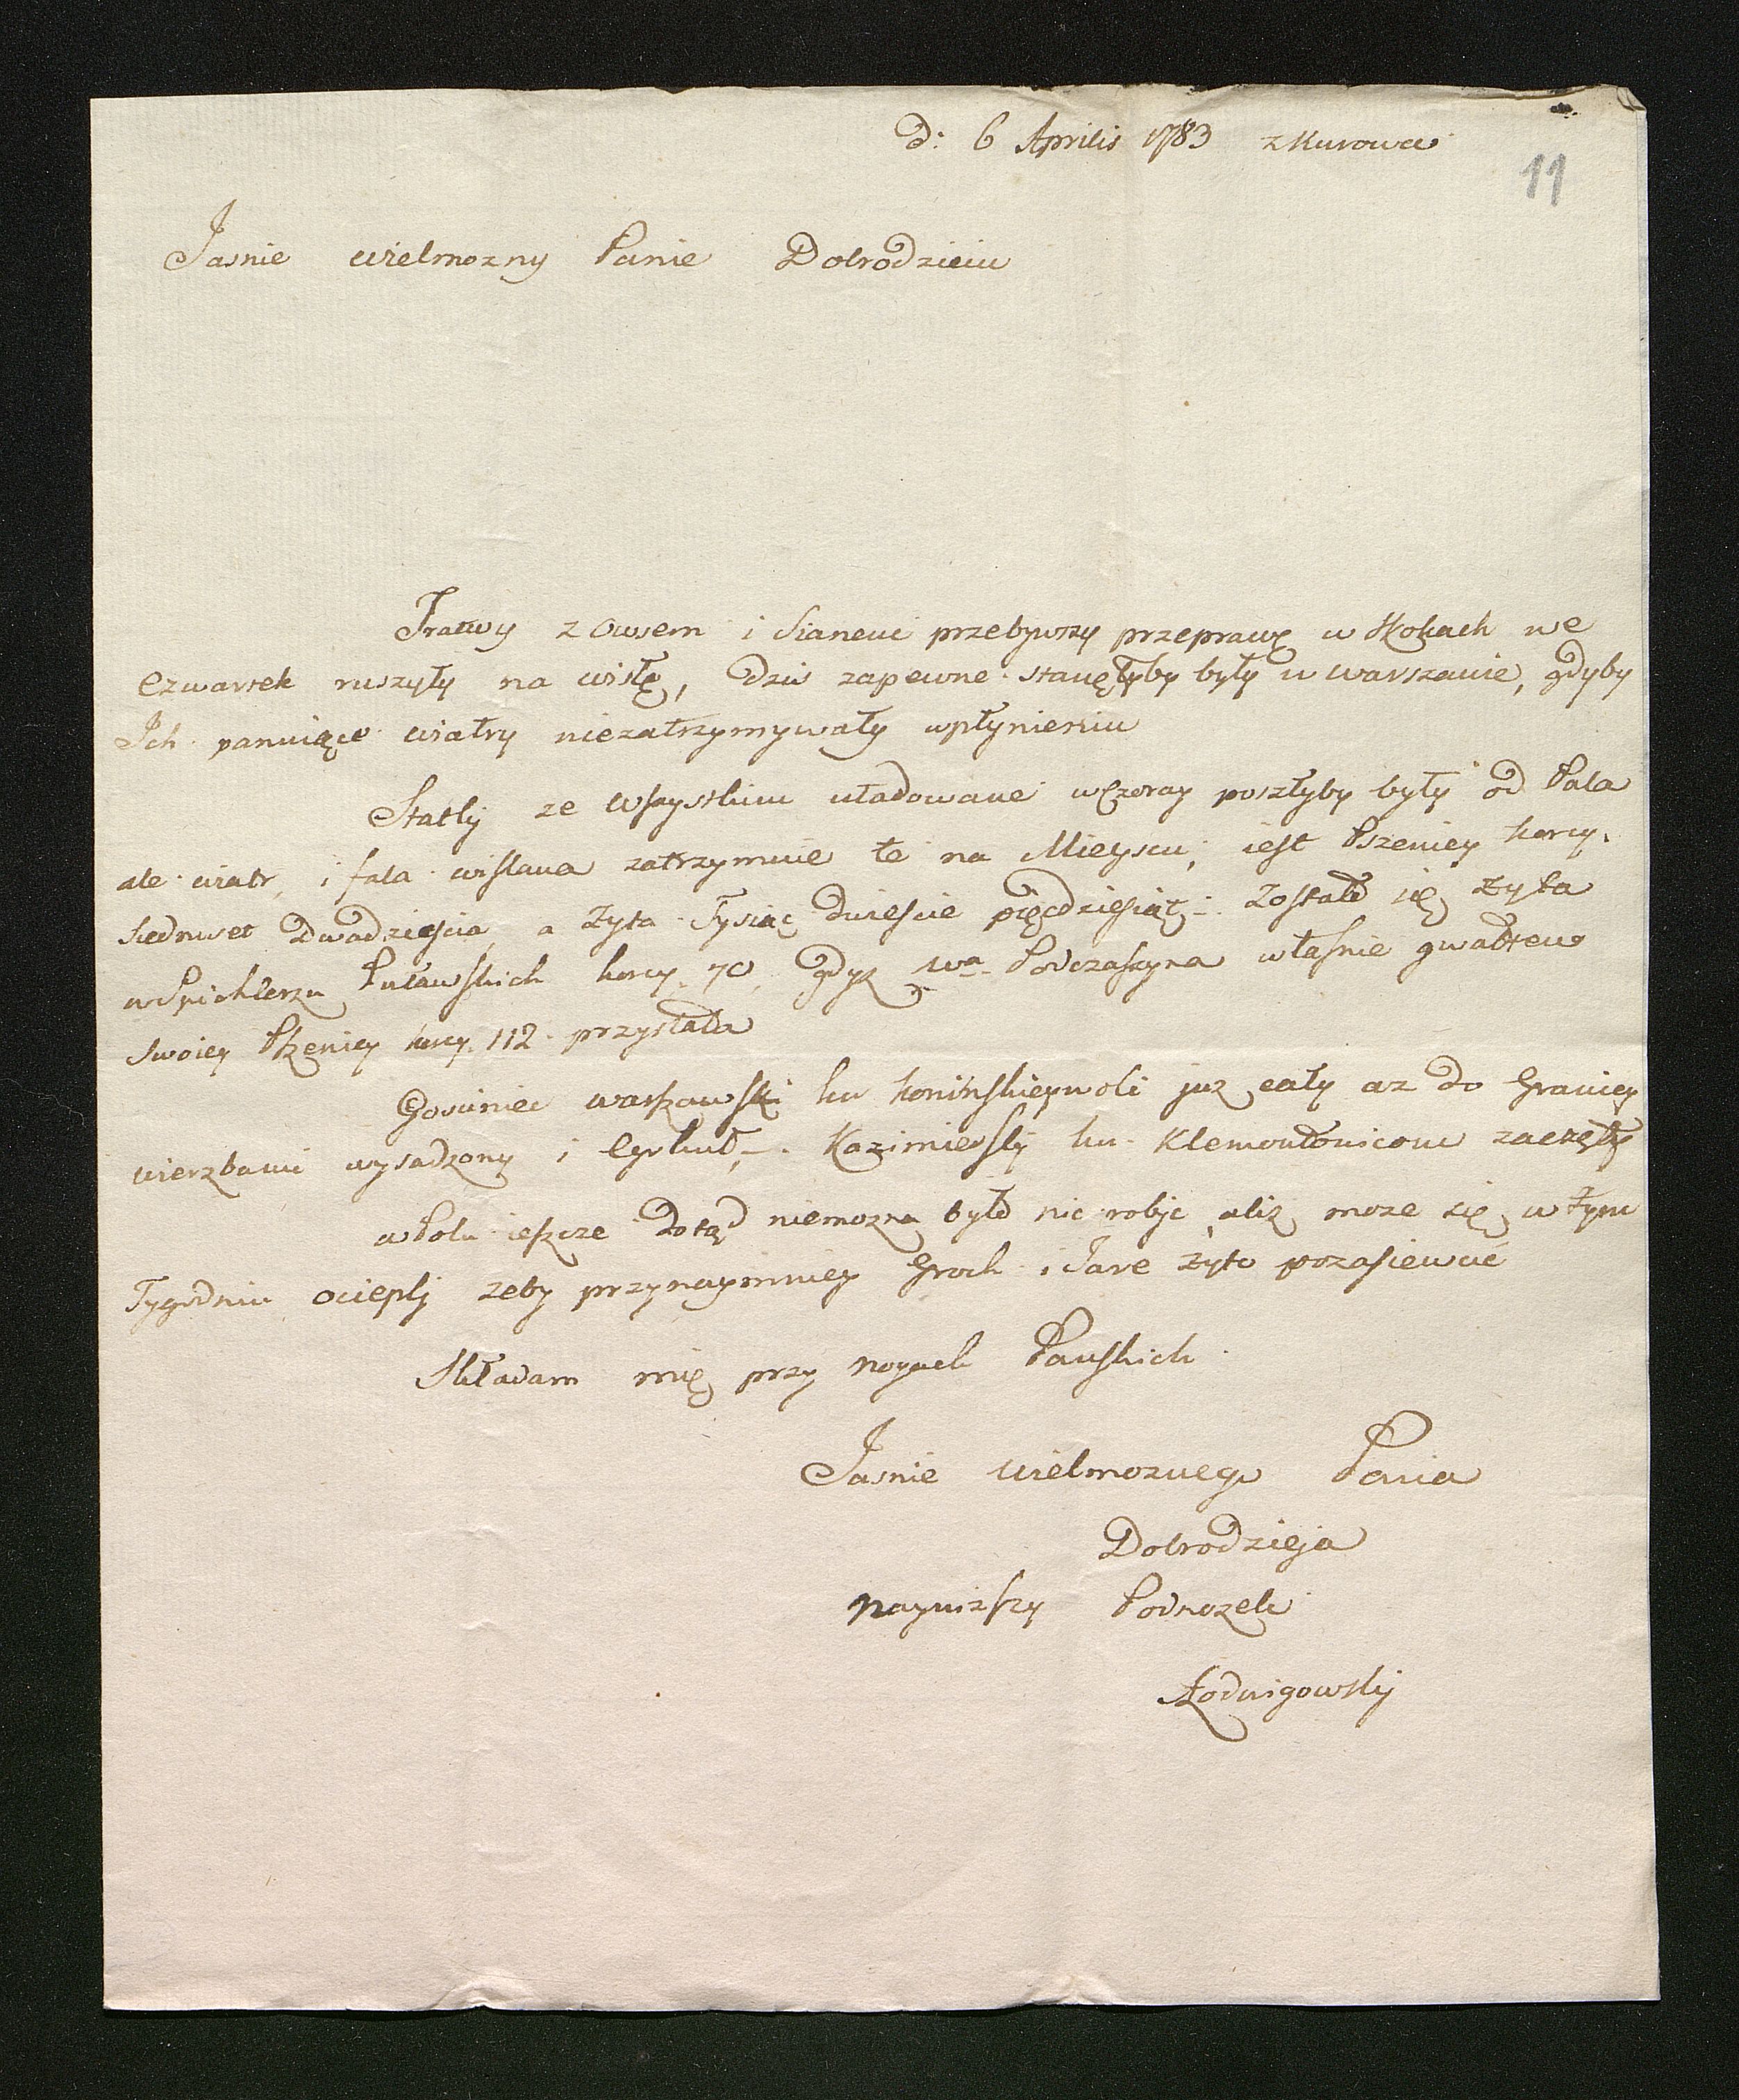 d: 6 Aprilis 1783 z Kurowa
11
Jasnie wielmozny Panie Dobrodzieiu
Tratwy z owsem i Sianem przebywszy przeprawę w Kokach we
Czwartek ruszyły na wisłę, dziś zapewne stanęłyby były w warszawie, gdyby
Ich panuiące wiatry niezatrzymywały wpłynieniu
Statki ze wszystkim uładowane wczoray poszłyby były od Pala
ale wiatr, i fala wislana zatrzymuie te na Mieyscu, iest Pszenicy korcy.
Siedmset Dwadziescia, a Zyta Tysiąc dwiescie pięcdziesiąt. Zostało się Zyta
w Spichlerzu Puławskich korcy 70, gdyz Wa Podczaszyna własnie gwałtem
Swoiey Pszenicy korcy 112 przysłała
Gosciniec warszawski ku Konińskieywoli juz cały az do Granicy
wierzbami wysadzony i -. Kazimierski ku Klemontowicom zaczęty
w Polu ieszcze dotąd niemozna było nic robić aliz moze się w tym
Tygodniu ociepli zeby przynaymniey Groch i Jare zyto pozasiewać
Składam mię przy nogach Pańskich.
Jasnie wielmoznego Pana
Dobrodzieja
Nayniższy Podnozek
Łodwigowski